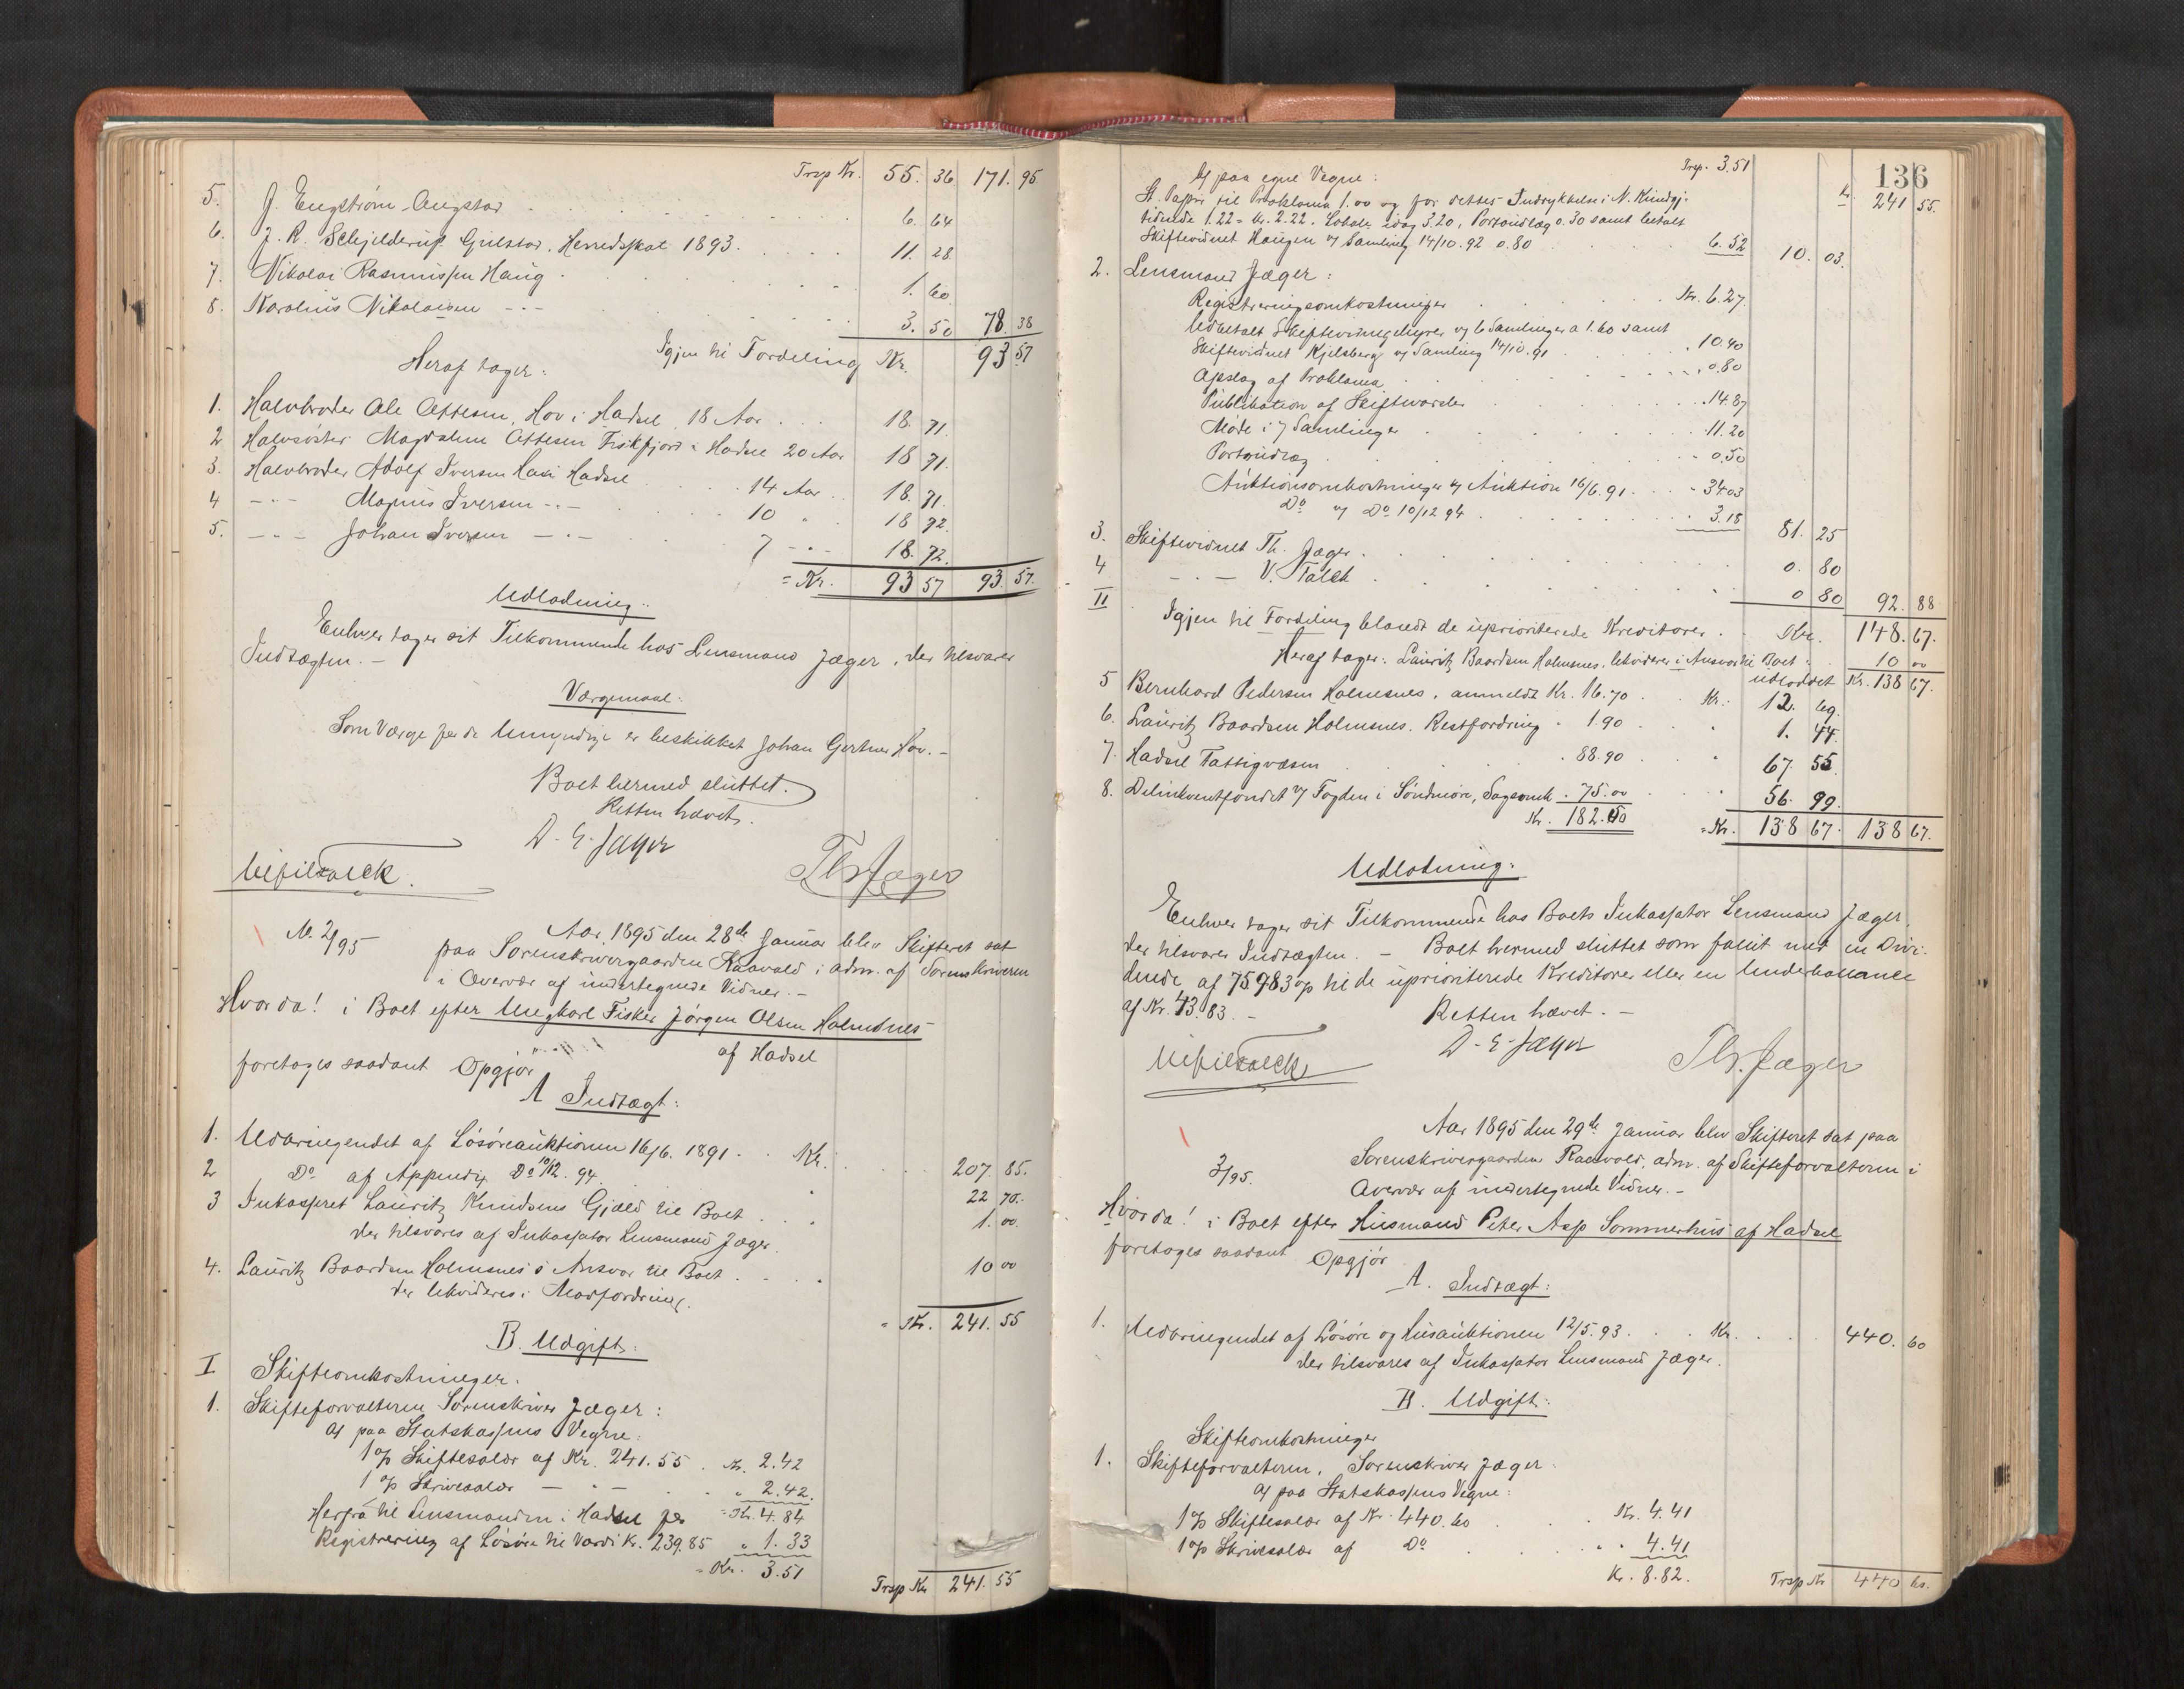 Trsp Kr. 55. 36 171. 95
5. J. Engstrøm Augstad 6. 64
6. J. R. Schjelderup Gulstad, Herredsskat 1893. 11. 28
7. Nikolai Rasmussen Haug 1. 60
8. Karolius Nikolaisen -"- 3. 50 78. 38
Igjen til Fordeling Kr. 93 57
Heraf tager:
1. Halvbroder Ole Ottesen, Hov i Hadsel, 18 Aar 18. 71.
2 Halvsøster Magdalene Ottesen Fiskfjord i Hadsel 20 Aar 18 71.
3. Halvbroder Adolf Iversen Hasi Hadsel 14 Aar 18. 71.
4 -"- Magnus Iversen -"- 10 " 18 72.
5. -"- Johan Iversen -"- 7 -"- 18. 72.
= Kr. 93 57 93. 57.
Udlodning:
Enhver tager sit Tilkommende hos Lensmand Jæger, der tilsvarer
Indtægten. -
Værgemaal:
Som Værge for de Umyndige er beskikket Johan Gertner Hov. -
Boet hermed sluttet.
Retten hævet.
D. E. Jæger
Th. Jæger
N. 2/95 Aar 1895 den 28de Januar blev Skifteret sat
paa Sorenskrivergaarden Raavold i adm. af Sorenskriveren
i Overvær af undertegnede Vidner. -
Hvorda! i Boet efter Ungkarl Fisker Jørgen Olsen Holmsnes
af Hadsel
foretoges saadant Opgjør
A Indtægt:
1. Udbringendet af Løsøreauktionen 16/6. 1891. Kr. 207. 85.
2 Do af Appendix Do 10/12. 94. 22 70.
3 Inkasseret Lauritz Knudsens Gjæld til Boet 1. 00.
der tilsvares af Inkassator Lensmand Jæger.
4. Lauritz Baardsen Holmsnes's Ansvar til Boet 10 00
der likvideres i Modfordring.
= Kr. 241. 55
B. Udgift:
I Skifteomkostninger.
1. Skifteforvalteren Sorenskriver Jæger:
a) paa Statskassens Vegne:
1 % Skiftesalær af Kr. 241.55 Kr. 2.42
1 % Skrivesalær -"- " 2.42.
= Kr. 4.84
Herfra til Lensmanden i Hadsel for
Registrering af Løsøre til Værdi Kr. 239.85 " 1.33
= Kr. 3.51
Trsp Kr 241. 55
136
Trsp. 3.51 Kr. 241 55.
b) paa egne Vegne:
St. Papir til Proklama 1.00 og for dettes Indrykkelse i N. Kundgj.
tidende 1.22 = Kr. 2.22. Lokale idag 3.20, Portoudlæg 0.30 samt betalt
Skiftevidnet Haugen v/ Samling 14/10.92 0.80 6.52 10. 03.
2. Lensmand Jæger:
Registreringsomkostninger Kr. 6.27
Udbetalt Skiftevidnegebyrer v/ 6 Samlinger a 1.60 samt
Skiftevidnet Kjelsberg v/ Samling 14/10.91 10.40
Opslag af Proklama 0.80
Publikation af Skiftevarsler 14.87
Møde i 7 Samlinger 11.20
Portoudlæg 0.50
Auktionsomkostninger v/ Auktion 16/6.91. 34.03
Do v/ Do 10/12 94 3.18 81. 25
3. Skiftevidnet Th. Jæger 0. 80
4 -"- V. Falck 0 80 92. 88
II Igjen til Fordeling blandt de uprioriterede Kreditorer Kr. 148. 67.
Heraf tager: Lauritz Baardsen Holmsnes, likviderer i Ansvar til Boet: 10 00
udloddet Kr. 138 67.
5 Bernhard Pedersen Holmsnes, anmeldt Kr. 16.70 Kr. 12. 69.
6. Lauritz Baardsen Holmsnes. Restfordring " 1.90 1. 44.
7. Hadsel Fattigvæsen " 88.90 67. 55.
8. Delinkventfondet v/ Fogden i Søndmøre, Sagsomk " 75.00 56. 99.
Kr. 182.50 = Kr. 138 67. 138 67.
Udlodning:
Enhver tager sit Tilkommende hos Boets Inkassator Lensmand Jæger,
der tilsvarer Indtægten. - Boet hermed sluttet som fallit med en Divi-
dende af 75.983 % til de uprioriterede Kreditorer eller en Underballance
af Kr. 43.83. -
Retten hævet. -
D. E. Jæger
Th. Jæger
3/95. Aar 1895 den 29de Januar blev Skifteret sat paa
Sorenskrivergaarden Raavold, adm. af Skifteforvalteren i
Overvær af undertegnede Vidner. -
Hvorda! i Boet efter Husmand Peter Asp Sommerhus af Hadsel
foretoges saadant Opgjør
A. Indtægt:
1. Udbringendet af Løsøre og Husauktionen 12/5.93. Kr. 440. 60
der tilsvares af Inkassator Lensmand Jæger.
B. Udgift:
Skifteomkostninger
1. Skifteforvalteren, Sorenskriver Jæger
a) paa Statskassens Vegne:
1 % Skiftesalær af Kr. 440.60 Kr. 4.41
1 % Skrivesalær af Do " 4.41
Kr. 8.82.
Trsp Kr 440 60.